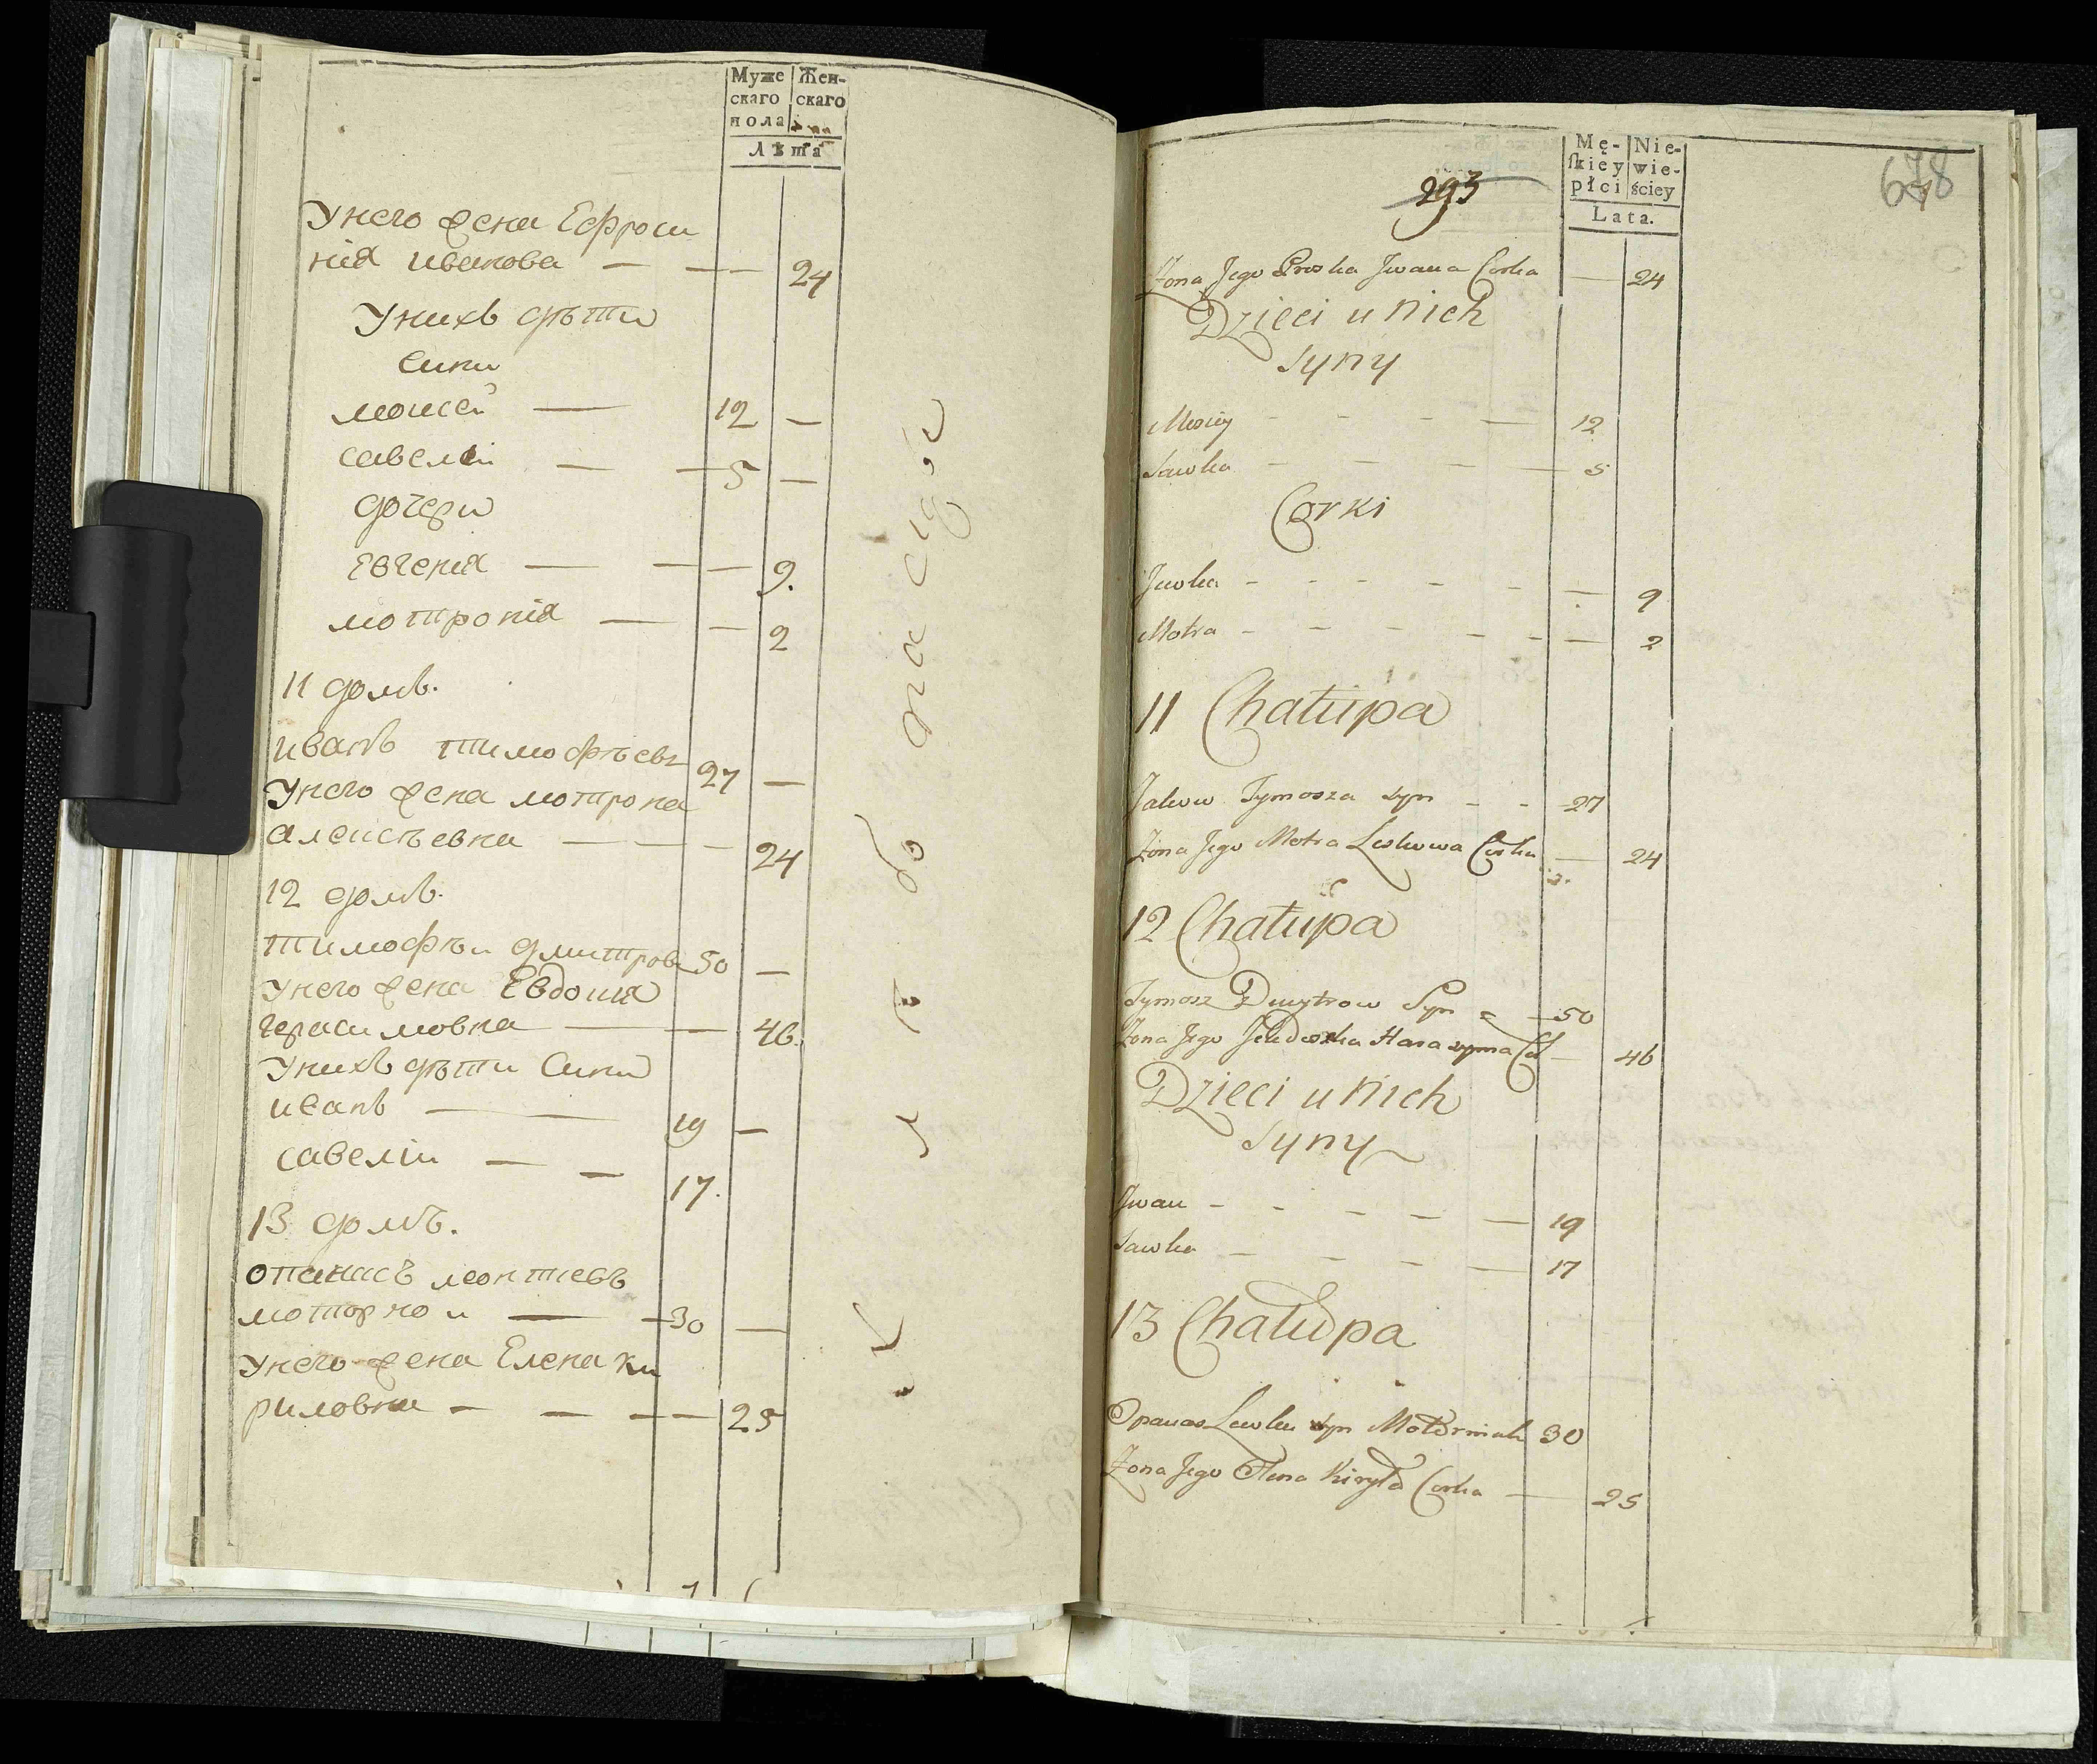 Муже Жен-
скаго скаго
пола
Лѣта
У него жена Ефроси
нія иванова — — — 24
У нихъ дѣти
сини
моисей — 12 —
савелій — — 5 —
дочери
Евгенія — — — 9.
мотронія — — 2
11 домъ.
иванъ тимофѣевъ 27 —
У него жена мотрона
алексѣевна — — — 24
12 домъ.
тимофѣи дмитровъ 50 —
У него жена Евдокия
герасимовна — — 46.
У нихъ дѣти Сини
иванъ — — 19 —
савеліи — — 17.
13 домъ.
опанасъ леонтиевъ
моторнои — — 30 —
У него жена Елена Ки
риловна — — — — 25
Mę- Nie-
skiey wie-
płci ściey
Lata.
293
678
Żona Jego Proska Jwana Corka — 24
Dzieci u Nich
Syny
Mosiey - - - — 12
Sawka - - - — 5
Corki
Jewka - - - - - — 9
Motra - - - - - — 2
11 Chałupa
Tymosza Syn - - 27
Żona Jego Motra Leskowa Corka — 24
12 Chałupa
Tymosz Dmytrow Syn - — 50
Żona Jego Harasyma — 46
Dzieci u Nich
Syny
Jwan - - - - — 19
Sawka - - - — 17
13 Chałupa
Opanas Lewka Syn 30
Żona Jego Olena Kiryła Corka — 25